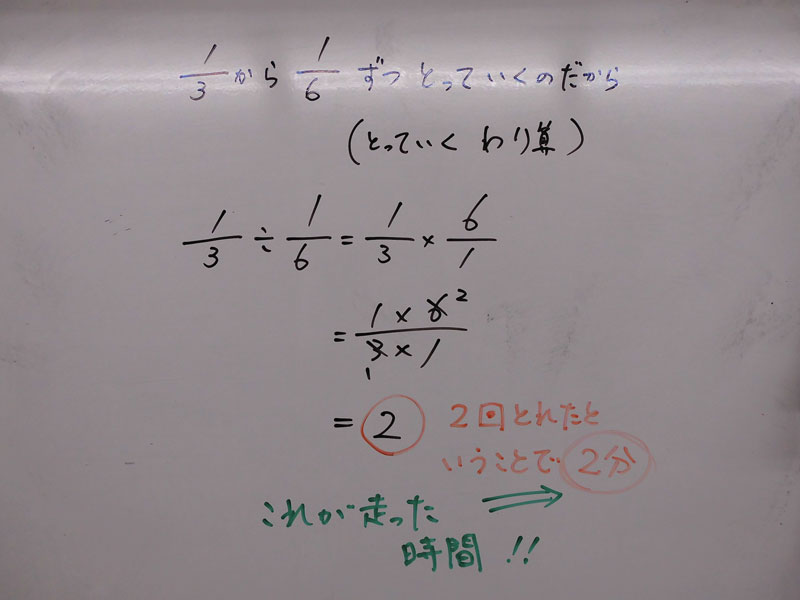 1/3 から 1/6 ずつ とっていくのだから
(とっていく わり算)
1/3 ÷ 1/6 = 1/3 × 6/1
= 1 × 6 2 / 3 1 × 1
= 2 2回とれたと
いうことで 2分
これが走った ⇒
時間!!